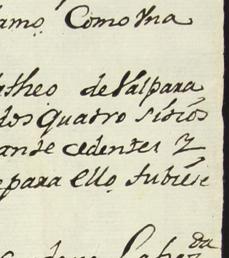 lamo, Como Vna
atheo de Valpara
dos quatro sitios
antecedentes Y
epara ello tubiese